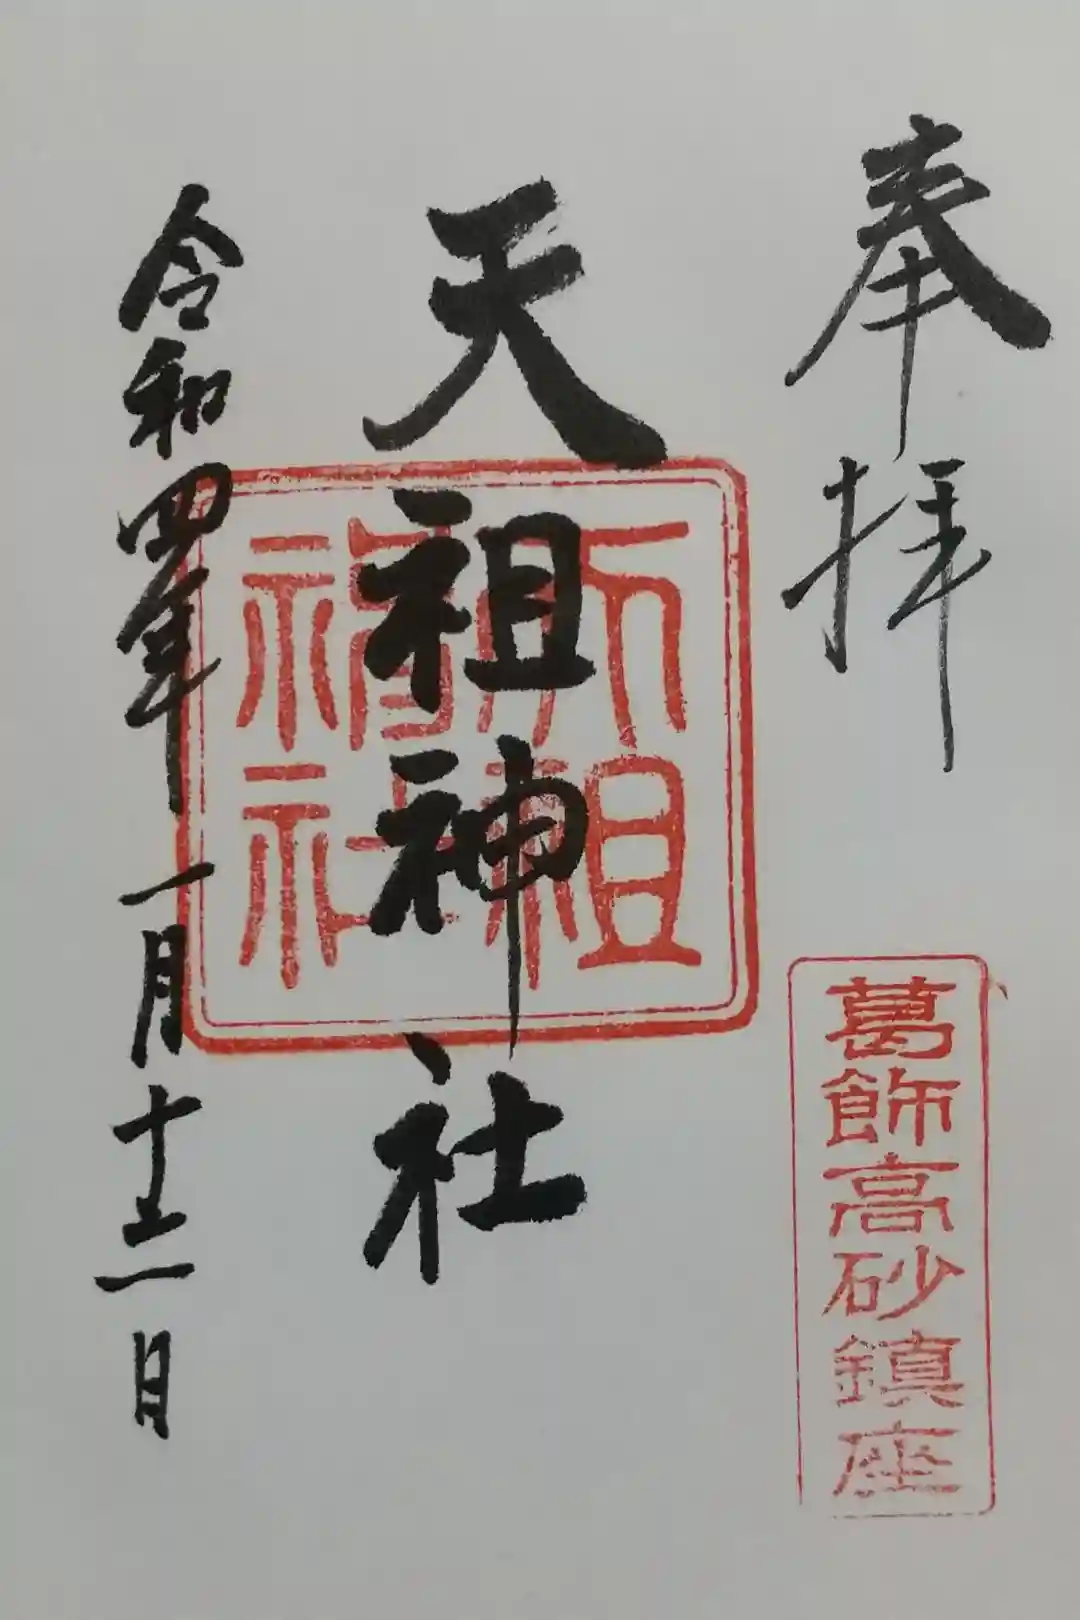 奉拝
葛飾高砂鎮座
天祖神社
天祖
神社
令和四年一月